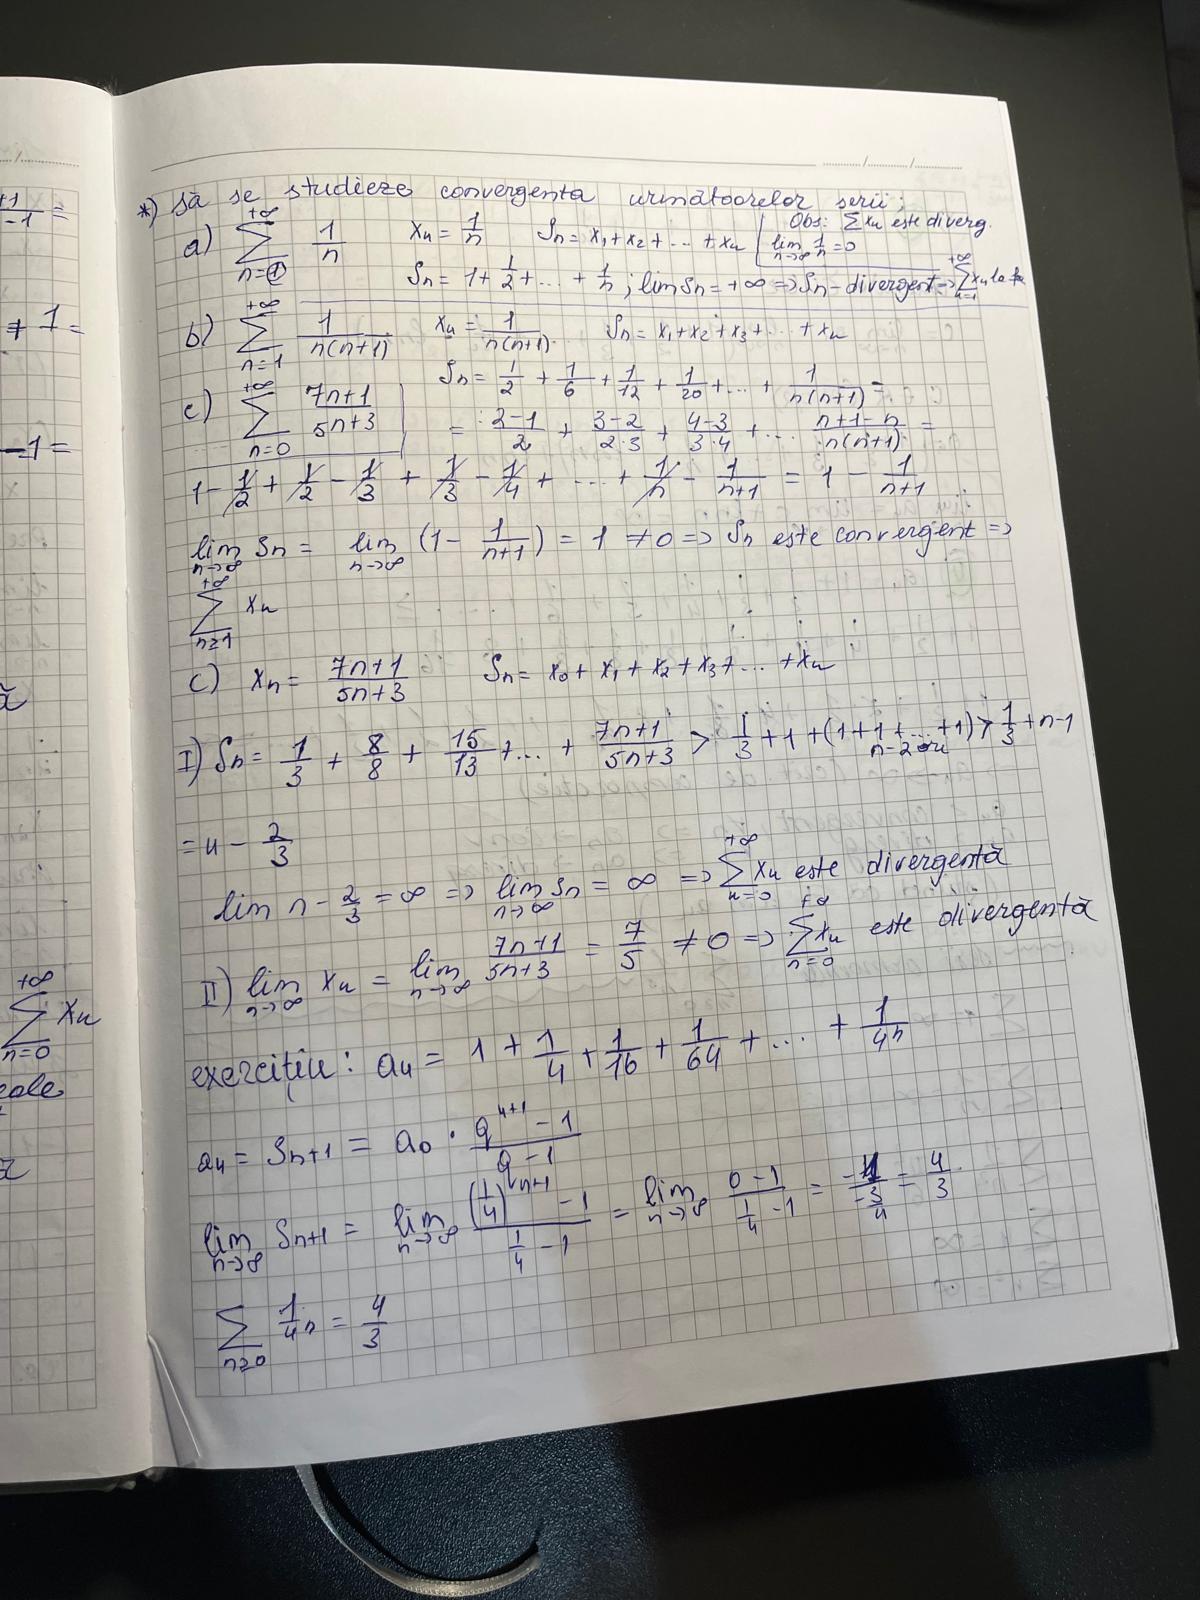 *) Să se studieze convergenta următoarelor serii:
a) \sum_{n=1}^{+∞} \frac{1}{n}   x_n = \frac{1}{n}   S_n = x_1 + x_2 + ... + x_n
Obs: \sum x_n este diverg.
\lim_{n→∞} \frac{1}{n} = 0
S_n = 1 + \frac{1}{2} + ... + \frac{1}{n} ; lim S_n = +∞ => S_n - divergent => \sum_{n=1}^{+∞} x_n
b) \sum_{n=1}^{+∞} \frac{1}{n(n+1)}   x_n = \frac{1}{n(n+1)}   S_n = x_1 + x_2 + x_3 + ... + x_n
S_n = \frac{1}{2} + \frac{1}{6} + \frac{1}{12} + \frac{1}{20} + ... + \frac{1}{n(n+1)} =
c) \sum_{n=0}^{+∞} \frac{7n+1}{5n+3}
= \frac{2-1}{2} + \frac{3-2}{2·3} + \frac{4-3}{3·4} + ... \frac{n+1-n}{n(n+1)} =
1 - \frac{1}{2} + \frac{1}{2} - \frac{1}{3} + \frac{1}{3} - \frac{1}{4} + ... + \frac{1}{n} - \frac{1}{n+1} = 1 - \frac{1}{n+1}
\lim_{n→∞} S_n = \lim_{n→∞} (1 - \frac{1}{n+1}) = 1 ≠ 0 => S_n este convergent =>
\sum_{n≥1}^{+∞} x_n
c) x_n = \frac{7n+1}{5n+3}   S_n = x_0 + x_1 + x_2 + x_3 + ... + x_n
I) S_n = \frac{1}{3} + \frac{8}{8} + \frac{15}{13} + ... + \frac{7n+1}{5n+3} > \frac{1}{3} + 1 + (1 + 1 + ... + 1) > \frac{1}{3} + n - 1
n-2 ori
= n - \frac{2}{3}
lim n - \frac{2}{3} = ∞ => \lim_{n→∞} S_n = ∞ => \sum_{n=0}^{+∞} x_n este divergentă
II) \lim_{n→∞} x_n = \lim_{n→∞} \frac{7n+1}{5n+3} = \frac{7}{5} ≠ 0 => \sum_{n=0}^{+∞} x_n este divergentă
exercițiu: a_n = 1 + \frac{1}{4} + \frac{1}{16} + \frac{1}{64} + ... + \frac{1}{4^n}
a_n = S_{n+1} = a_0 · \frac{q^{n+1} - 1}{q - 1}
\lim_{n→∞} S_{n+1} = \lim_{n→∞} \frac{(\frac{1}{4})^{n+1} - 1}{\frac{1}{4} - 1} = \lim_{n→∞} \frac{0-1}{\frac{1}{4} - 1} = \frac{-1}{-\frac{3}{4}} = \frac{4}{3}
\sum_{n≥0} \frac{1}{4^n} = \frac{4}{3}
\sum_{n=0}^{+∞} x_n